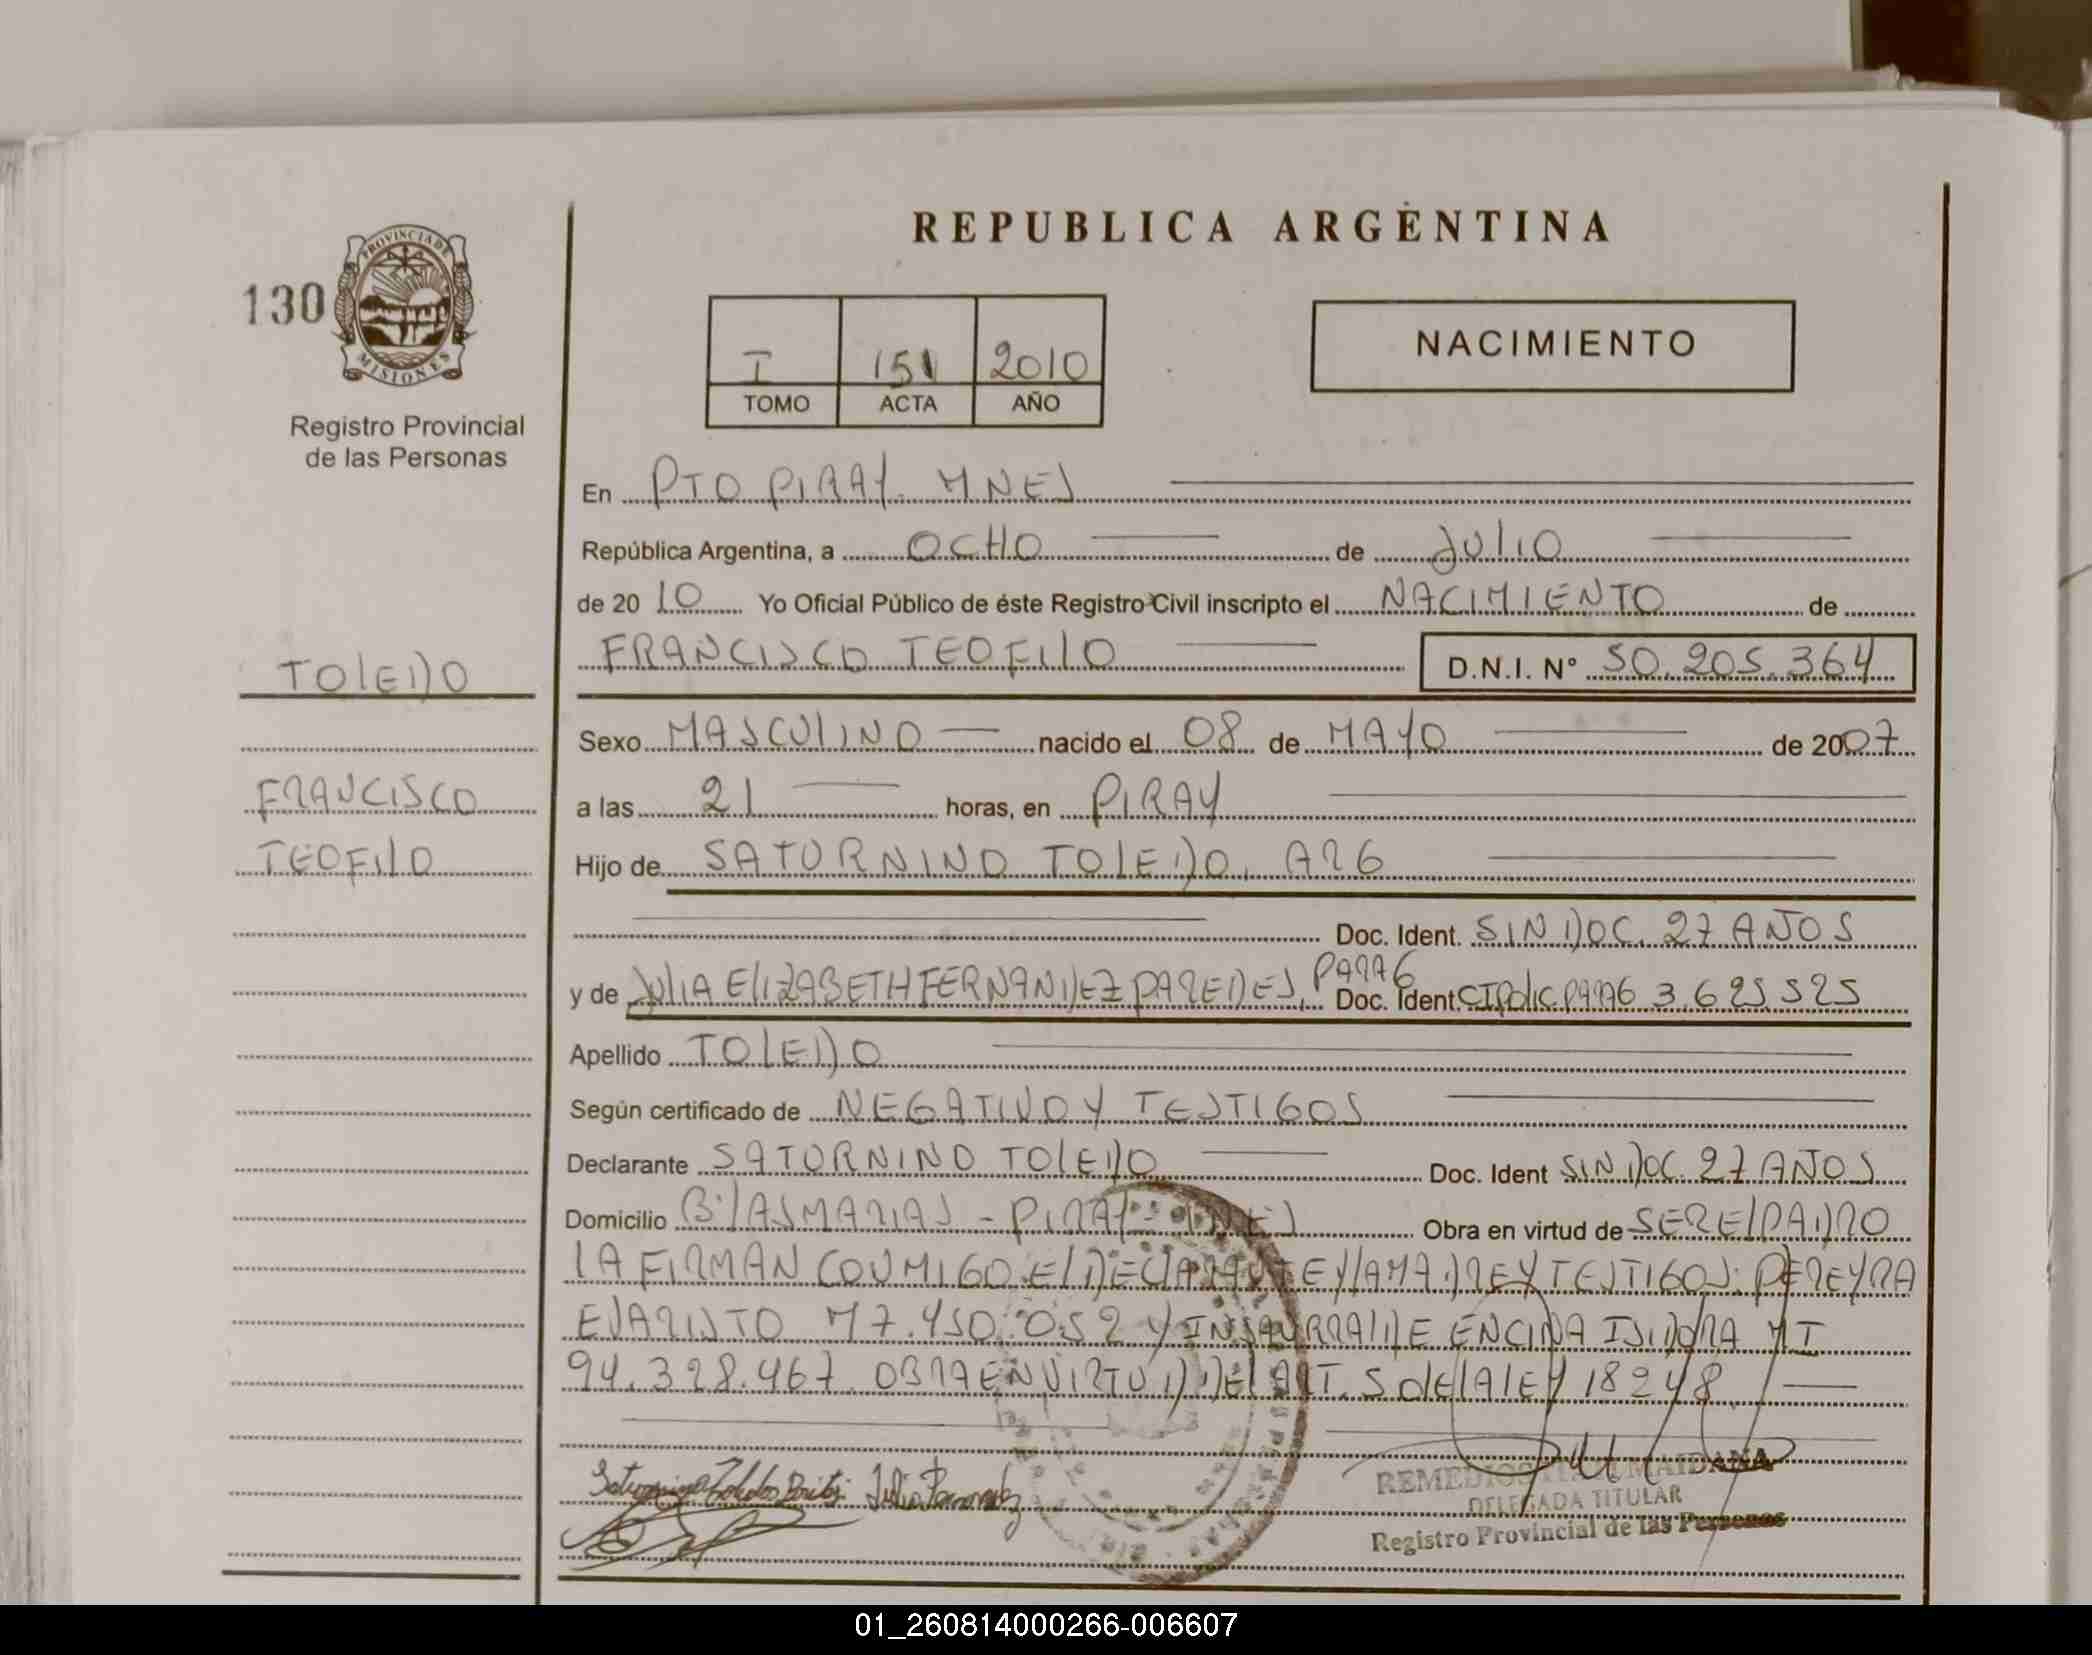 REPUBLICA ARGENTINA
130
PROVINCIA DE
MISIONES
Registro Provincial
de las Personas
I 151 2010
TOMO ACTA AÑO
NACIMIENTO
En PTO PIRAY. MNES
República Argentina, a OCHO de JULIO
de 2010 Yo Oficial Público de éste Registro Civil inscripto el NACIMIENTO de
TOLEDO
FRANCISCO TEOFILO D.N.I. N° 50.205.364
Sexo MASCULINO nacido el 08 de MAYO de 2007
FRANCISCO
a las 21 horas, en PIRAY
TEOFILO
Hijo de SATURNINO TOLEDO, ARG
Doc. Ident. SIN DOC. 27 AÑOS
y de JULIA ELIZABETH FERNANDEZ PAREDES, PARAG Doc. Ident. CI POLIC PARAG 3.625525
Apellido TOLEDO
Según certificado de NEGATIVO Y TESTIGOS
Declarante SATURNINO TOLEDO Doc. Ident SIN DOC. 27 AÑOS
Domicilio B: LAS MARIAS - PIRAY - Obra en virtud de SER EL PADRO
LA FIRMAN CONMIGO EL DECLARANTE Y LA MADRE Y TESTIGOS: PEREYRA
EVARISTO M7.450.052 Y INSAURRALDE ENCINA ISIDORA MI
94.328.467 OBRA EN VIRTUD DEL ART. 5 DE LA LEY 18248
Julia Fernandez
REMEDIOS MAIDANA
DELEGADA TITULAR
Registro Provincial de las Personas
01_260814000266-006607